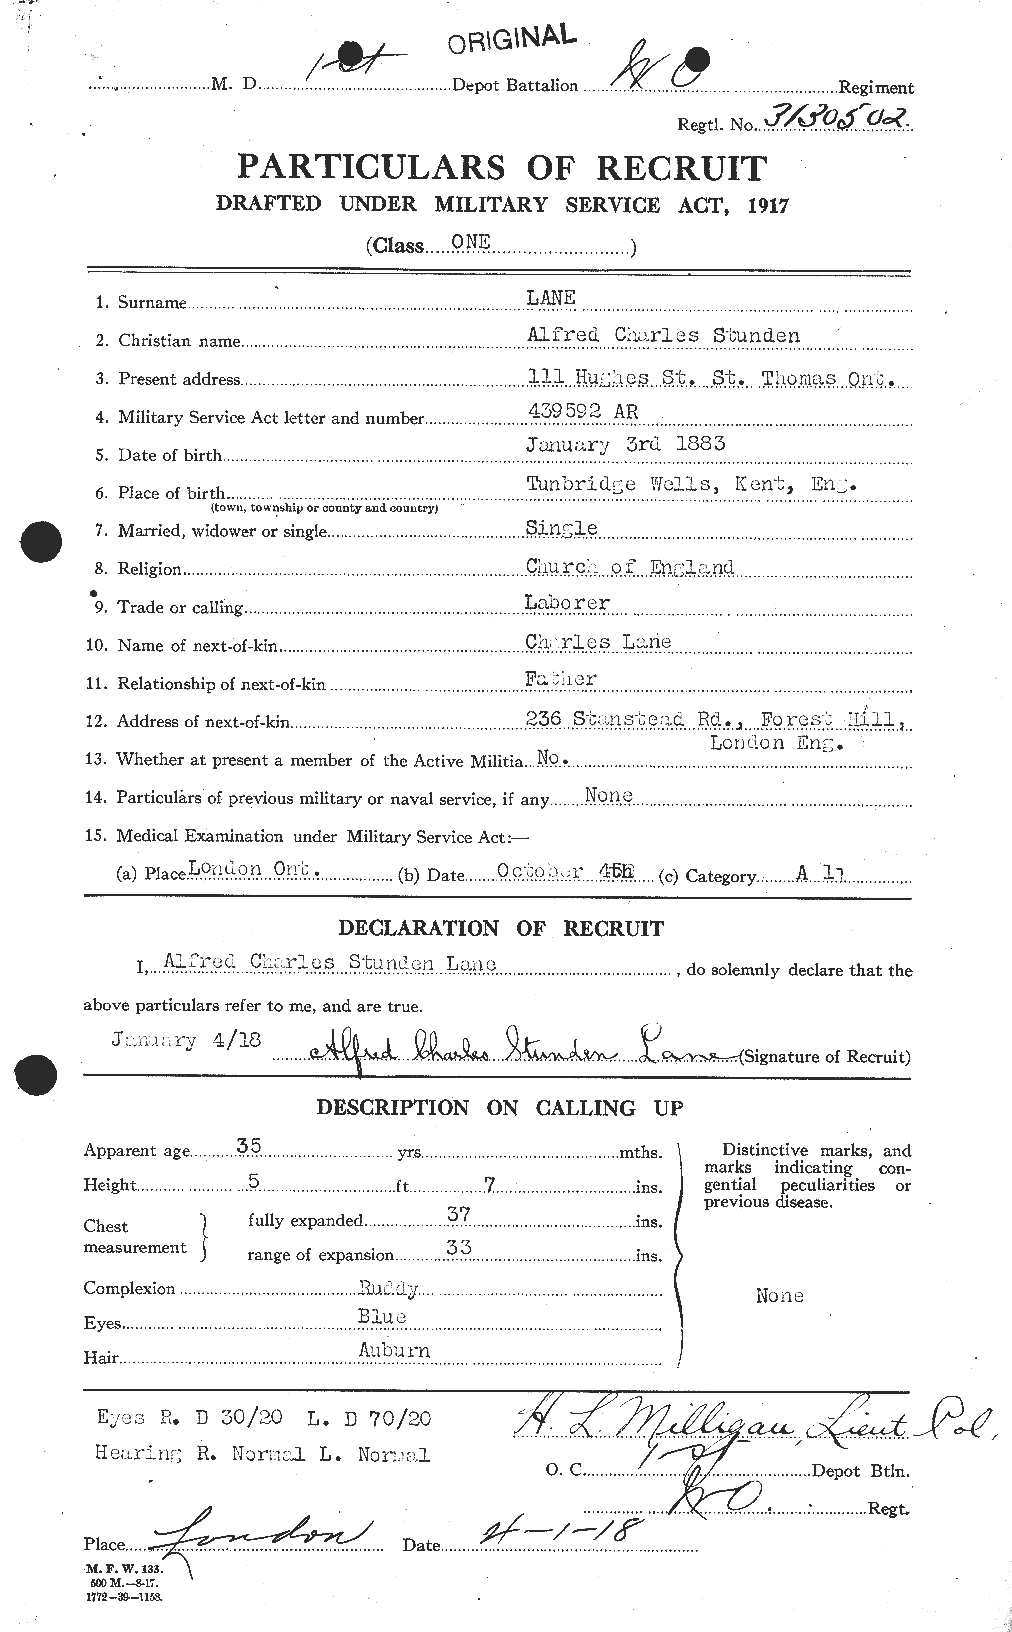 ORIGINAL
M. D. 1st Depot Battalion W O Regiment
Regtl. No. 3130502.
PARTICULARS OF RECRUIT
DRAFTED UNDER MILITARY SERVICE ACT, 1917
(Class ONE )
1. Surname LANE
2. Christian name Alfred Charles Stunden
3. Present address 111 Hughes St. St. Thomas Ont.
4. Military Service Act letter and number 439592 AR
5. Date of birth January 3rd 1883
6. Place of birth Tunbridge Wells, Kent, Eng.
(town, township or county and country)
7. Married, widower or single Single
8. Religion Church of England
9. Trade or calling Laborer
10. Name of next-of-kin Charles Lane
11. Relationship of next-of-kin Father
12. Address of next-of-kin 236 Stanstead Rd., Forest Hill,
London Eng.
13. Whether at present a member of the Active Militia No.
14. Particulars of previous military or naval service, if any None
15. Medical Examination under Military Service Act:—
(a) Place London Ont. (b) Date October (c) Category A
DECLARATION OF RECRUIT
I, Alfred Charles Stunden Lane , do solemnly declare that the
above particulars refer to me, and are true.
January 4/18 Alfred Charles Stunden Lane (Signature of Recruit)
DESCRIPTION ON CALLING UP
Apparent age 35 yrs. mths.
Height 5 ft 7 ins.
Chest measurement } fully expanded 37 ins.
range of expansion 33 ins.
Complexion Ruddy
Eyes Blue
Hair Auburn
Distinctive marks, and
marks indicating con-
gential peculiarities or
previous disease.
None
Eyes R. D 30/20 L. D 70/20
Hearing R. Normal L. Normal
H. L. Milligan, Lieut. Col.
O. C. 1st Depot Btln.
W O. Regt.
Place London Date 4-1-18
M. F. W. 133.
500 M.—8-17.
1772—39—1158.